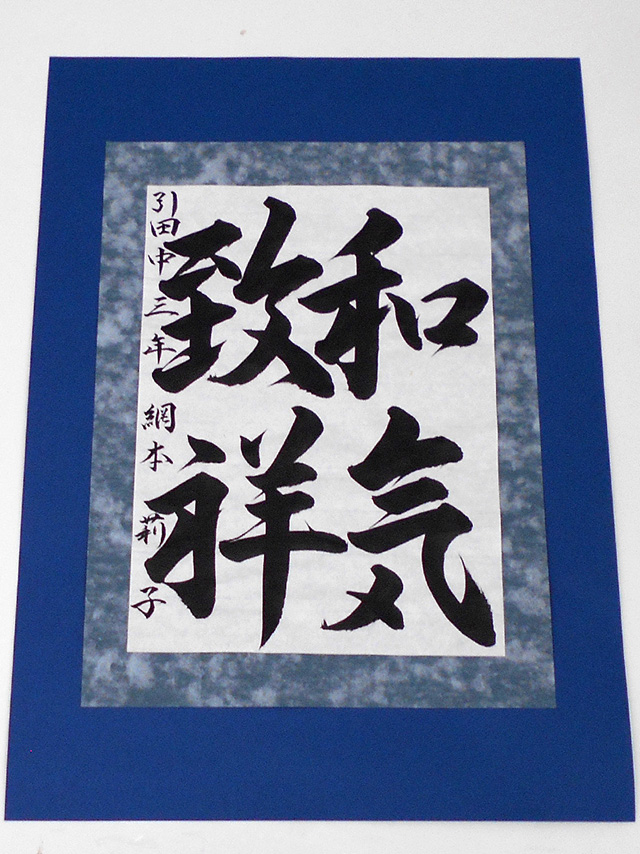 和気
致祥
引田中三年 網本莉子